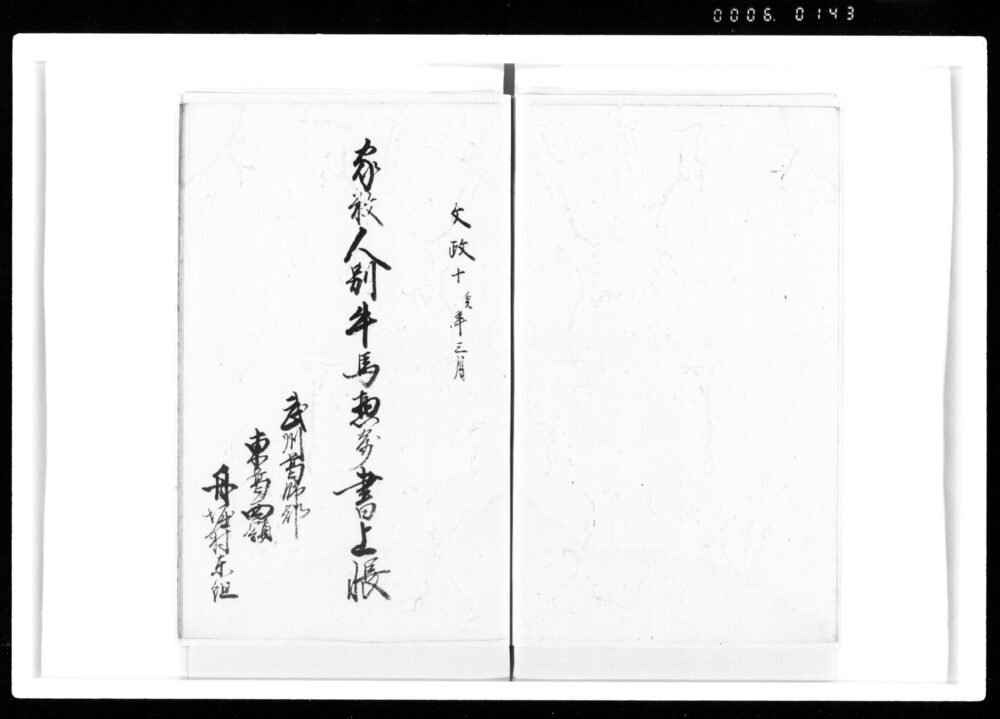 0006. 0143
文政十亥年三月
家数人別牛馬惣寄書上帳
武州葛飾郡
東葛西領
舟堀村東組